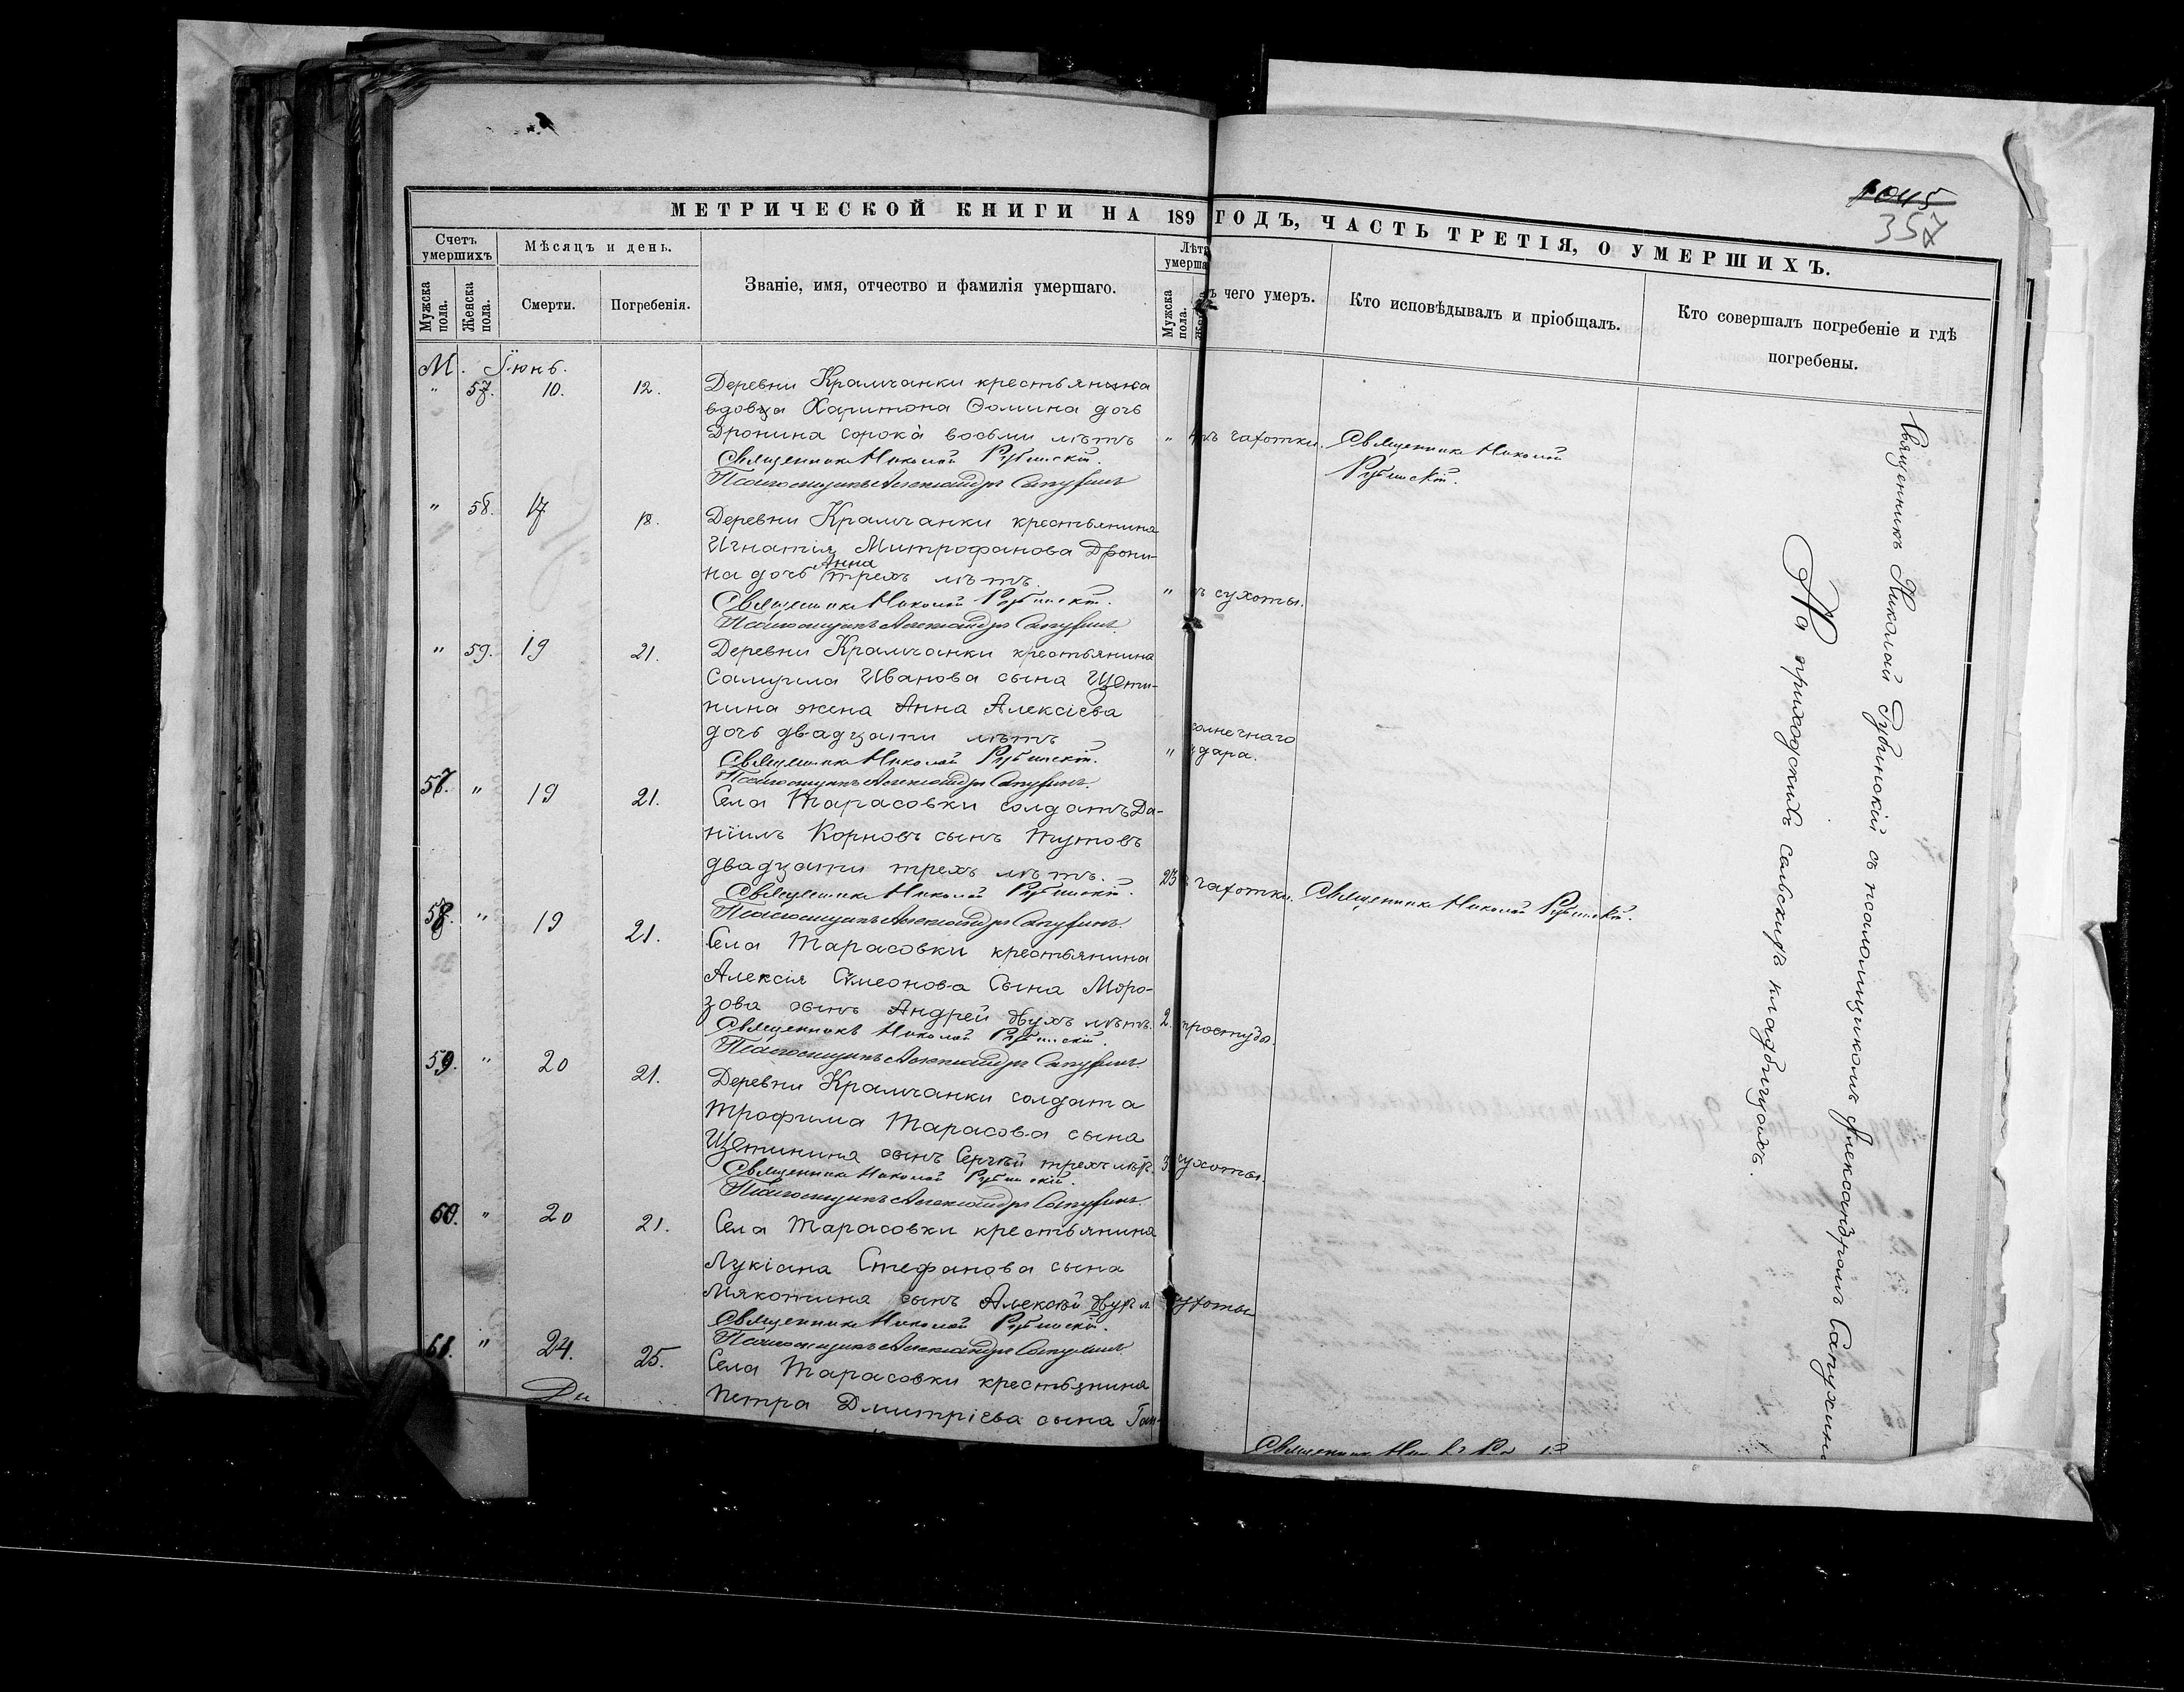 1045
357
МЕТРИЧЕСКОЙ КНИГИ НА 189 ГОДЪ, ЧАСТЬ ТРЕТІЯ, О УМЕРШИХЪ.
Счетъ умершихъ
Мѣсяцъ и день.
Званіе, имя, отчество и фамилія умершаго.
Лѣта умерша
ъ чего умеръ.
Кто исповѣдывалъ и пріобщалъ.
Кто совершалъ погребеніе и гдѣ
погребены.
Мужска пола.
Женска пола.
Смерти.
Погребенія.
Мужска пола.
М. Іюнь.
" 57. 10. 12. Деревни Крамчанки крестьянина
вдовца Харитона Ѳомина дочь
Дронина сорока восьми лѣтъ " чахотки. Священникъ Николай
Священникъ Николай Рубинскій. Рубинскій.
Псаломщикъ Александръ Сапухинъ
" 58. 17 18. Деревни Крамчанки крестьянина
Игнатія Митрофанова Дрони-
на дочь Анна трехъ лѣтъ.
Священникъ Николай Рубинскій. " ъ сухоты.
Псаломщикъ Александръ Сапухинъ.
" 59. 19 21. Деревни Крамчанки крестьянина
Самуила Иванова сына Щети-
нина жена Анна Алексіева
дочь двадцати лѣтъ солнечнаго
Священникъ Николай Рубинскій. " удара.
Псаломщикъ Александръ Сапухинъ.
57. " 19 21. Села Тарасовки солдатъ Да-
ніилъ Корновъ сынъ Тутовъ
двадцати трехъ лѣтъ. 23 чахотки. Священникъ Николай Рубинскій.
Священникъ Николай Рубинскій.
Псаломщикъ Александръ Сапухинъ.
58. " 19 21. Села Тарасовки крестьянина
Алексія Симеонова Сына Моро-
зова сынъ Андрей двухъ лѣтъ. 2. простуды.
Священникъ Николай Рубинскій.
Псаломщикъ Александръ Сапухинъ.
59. " 20 21. Деревни Крамчанки солдата
Трофима Тарасова сына
Щетинина сынъ Сергѣй трехъ лѣтъ. 3. сухоты.
Священникъ Николай Рубинскій.
Псаломщикъ Александръ Сапухинъ.
60. " 20 21. Села Тарасовки крестьянина
Лукіана Стефанова сына
Мякотина сынъ Алексѣй двух л сухоты
Священникъ Николай Рубинскій.
Псаломщикъ Александръ Сапухинъ.
61. " 24. 25. Села Тарасовки крестьянина
Петра Дмитріева сына
Священникъ
Священникъ Николай Рубинскій съ псаломщикомъ Александромъ Сапухинымъ
На приходскихъ сельскихъ кладбищахъ.